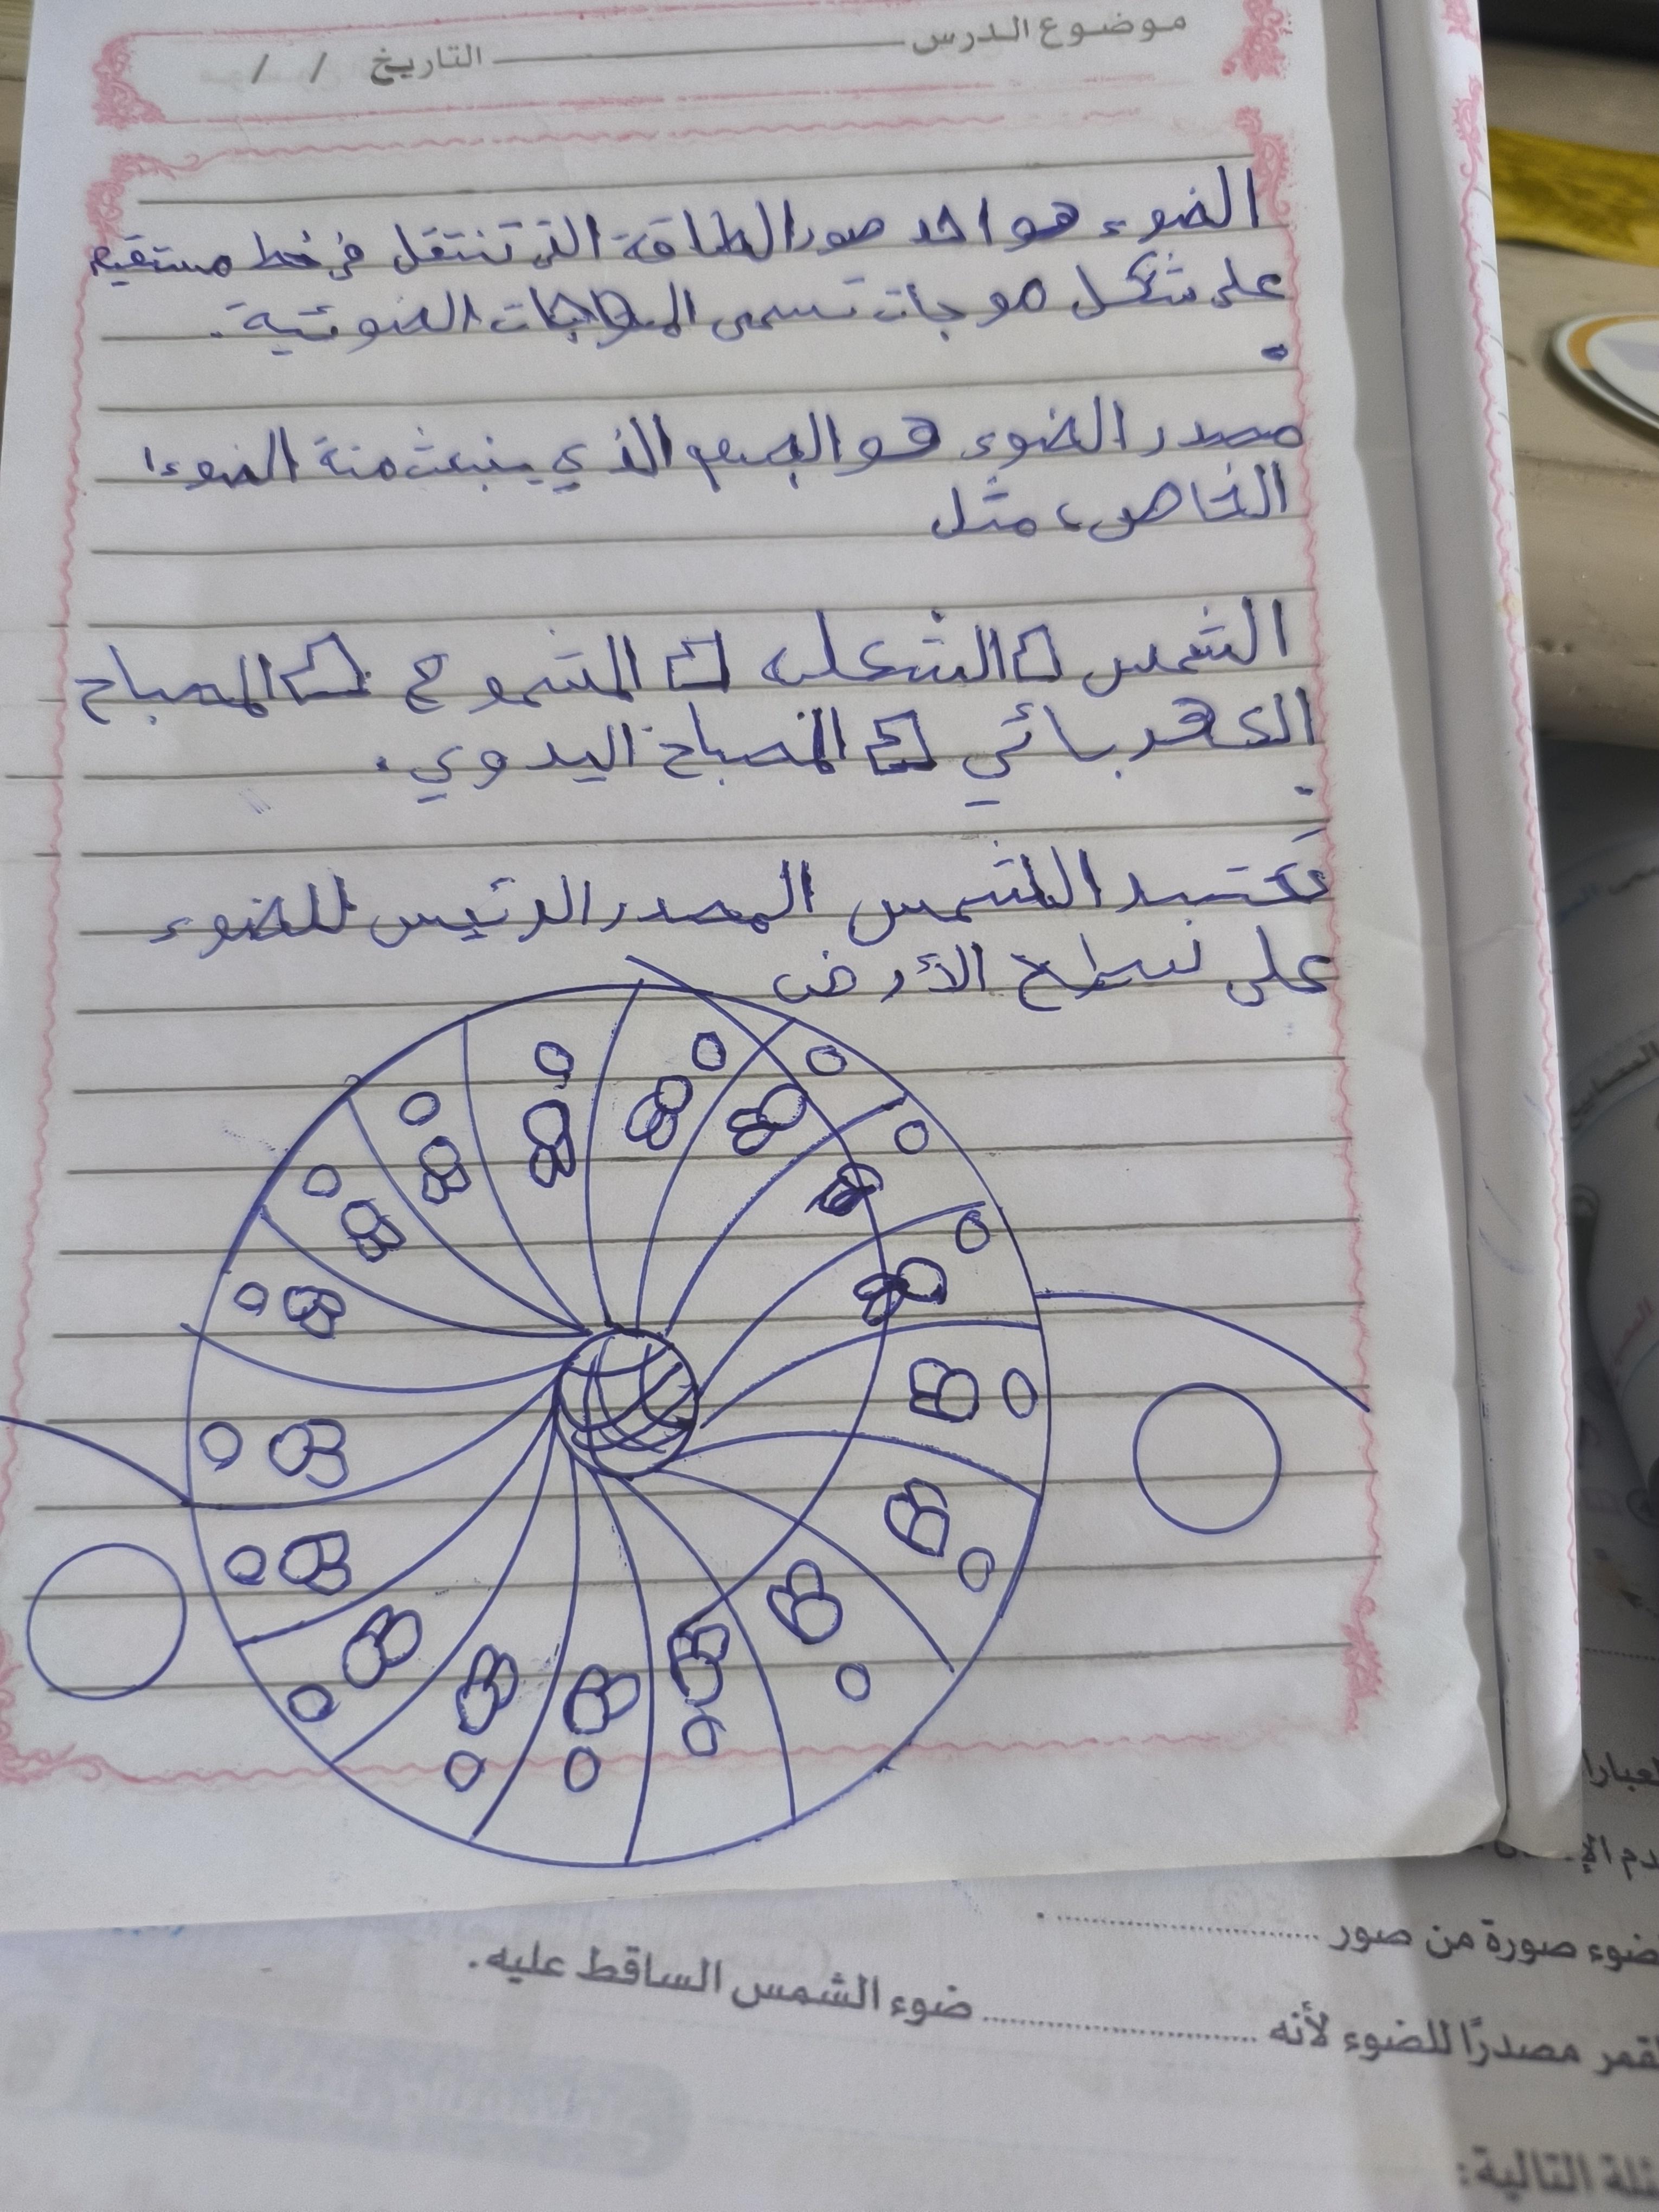 موضوع الدرس
التاريخ / /
الضوء هو احد صور الطاقة التي تنتقل في خط مستقيم
على شكل موجات تسمى الموجات الضوئية.
مصدر الضوء هو الجسم الذي ينبعث منة الضوء
الخاص، مثل
الشمس الشعله الشموع المصباح
الكهربائي المصباح اليدوي.
تعتبر الشمس المصدر الرئيس للضوء
على سطح الأرض
ضوء صورة من صور
قمر مصدرًا للضوء لأنه ضوء الشمس الساقط عليه.
التالية: